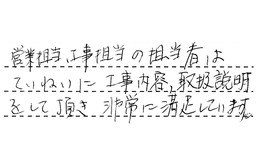 営業担当、工事担当の担当者は
ていねいに工事内容、取扱説明
をして頂き非常に満足しています。